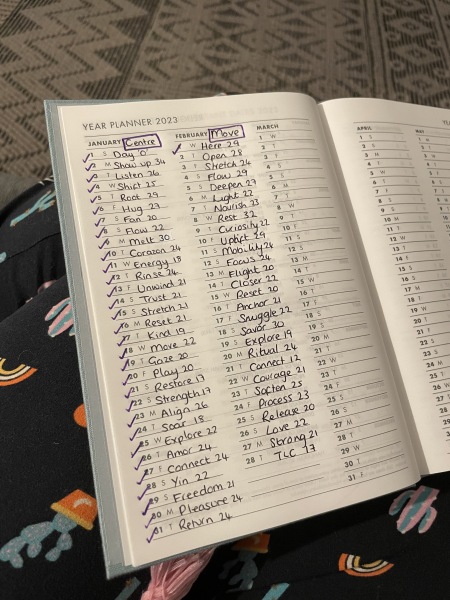 YEAR PLANNER 2023
JANUARY Centre
1 S Day '0'
2 M Show up 34
3 T Listen 26
4 W Shift 25
5 T Root 29
6 F Hug 23
7 S Fan 20
8 S Flow 22
9 M Melt 30
10 T Corazon 24
11 W Energy 18
12 T Rinse 24
13 F Unwind 21
14 S Trust 21
15 S Stretch 21
16 M Reset 21
17 T Kind 19
18 W Move 22
19 T Gaze 20
20 F Play 20
21 S Restore 17
22 S Strength 17
23 M Align 26
24 T Soar 18
25 W Explore 22
26 T Amor 24
27 F Connect 24
28 S Yin 22
29 S Freedom 21
30 M Pleasure 24
31 T Return 24
FEBRUARY Move
1 W Here 29
2 T Open 28
3 F Stretch 24
4 S Flow 29
5 S Deepen 29
6 M Light 22
7 T Nourish 23
8 W Rest 32
9 T Curiosity 22
10 F Uplift 29
11 S Mobility 24
12 S Focus 24
13 M Flight 20
14 T Closer 22
15 W Reset 20
16 T Anchor 21
17 F Snuggle 22
18 S Savor 30
19 S Explore 19
20 M Ritual 24
21 T Connect 12
22 W Courage 21
23 T Soften 25
24 F Process 23
25 S Release 20
26 S Love 22
27 M Strong 21
28 T TLC 17
MARCH
1 W
2 T
3 F
4 S
5 S
6 M
7 T
8 W
9 T
10 F
11 S
12 S
13 M
14 T
15 W
16 T
17 F
18 S
19 S
20 M
21 T
22 W
23 T
24 F
25 S
26 S
27 M
28 T
29 W
30 T
31 F
APRIL
1 S
2 S
3 M
4 T
5 W
6 T
7 F
8 S
9 S
10 M
11 T
12 W
13 T
14 F
15 S
16 S
17 M
18 T
19 W
20 T
21 F
22 S
23 S
24 M
25 T
26 W
27 T
28 F
29 S
30 S
MAY